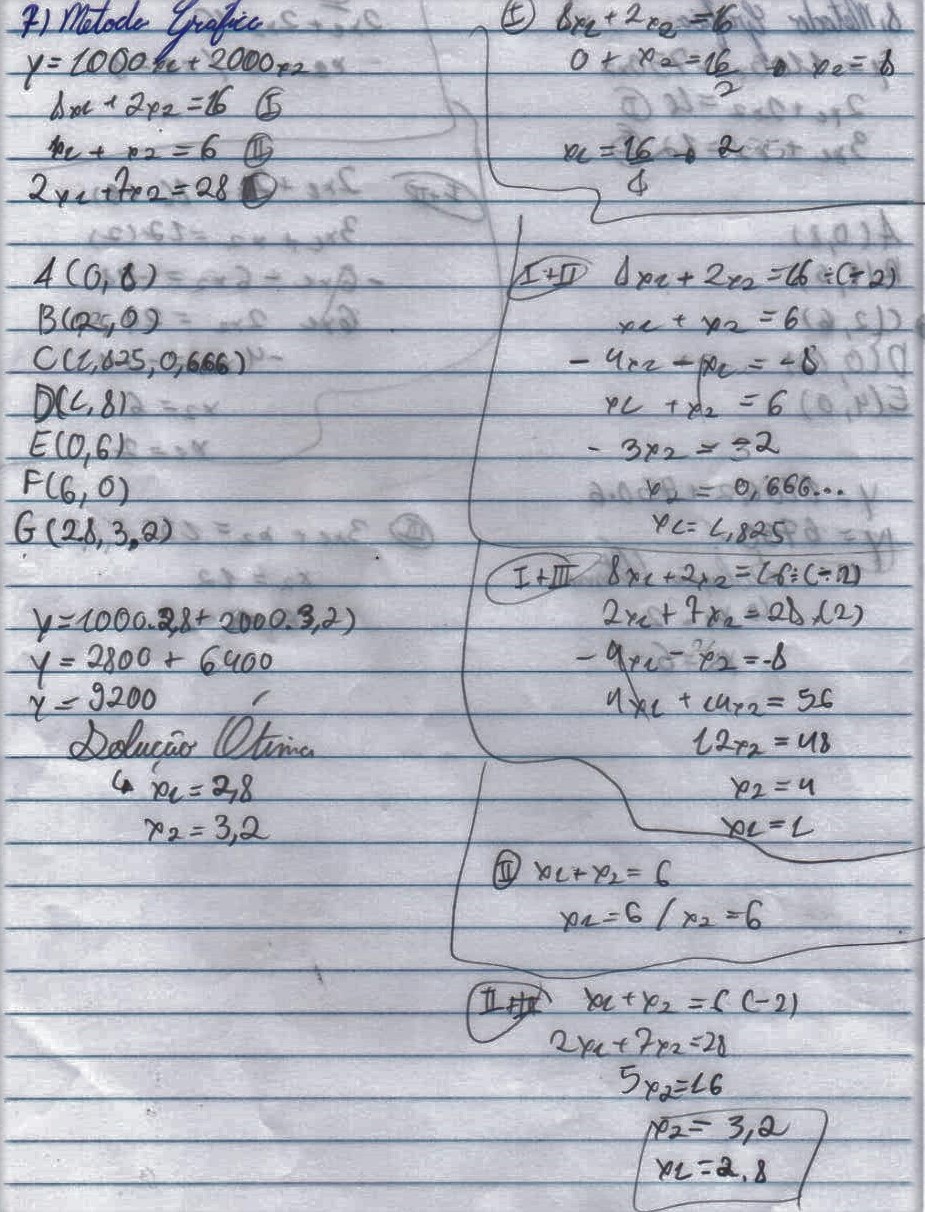 7) Metodo Grafico
y = 1000x1 + 2000x2
8x1 + 2x2 = 16 (I)
x1 + x2 = 6 (II)
2x1 + 7x2 = 28
A (0, 8)
B(2, 0)
C(1,825, 0,666)
D(1, 8)
E(0,6)
F(6, 0)
G (2.8, 3,2)
y = 1000.2,8 + 2000.3,2)
y = 2800 + 6400
y = 9200
Solução Ótima
↳ x1 = 2,8
x2 = 3,2
(I) 8x1 + 2x2 = 16
0 + x2 = 16/2 → x2 = 8
x1 = 16/8 → 2
I+II 8x1 + 2x2 = 16 ÷(-2)
x1 + x2 = 6
- 4x2 - x1 = -8
x1 + x2 = 6
- 3x2 = -2
x2 = 0,666...
x1 = 1,825
I+III 8x1 + 2x2 = 16 ÷(-2)
2x1 + 7x2 = 28 .(2)
- 4x1 - x2 = -8
4x1 + 14x2 = 56
12x2 = 48
x2 = 4
x1 = 1
(II) x1 + x2 = 6
x1 = 6 / x2 = 6
II+III x1 + x2 = 6 (-2)
2x1 + 7x2 = 28
5x2 = 16
x2 = 3,2
x1 = 2,8